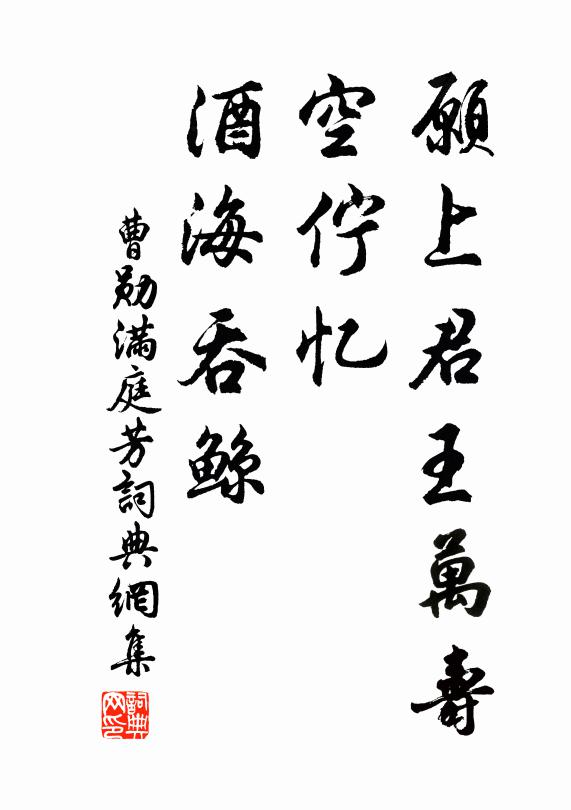 願上君王萬壽
空佇忆
酒海吞鲸
曹勛滿庭芳詞典網集
詞典网印